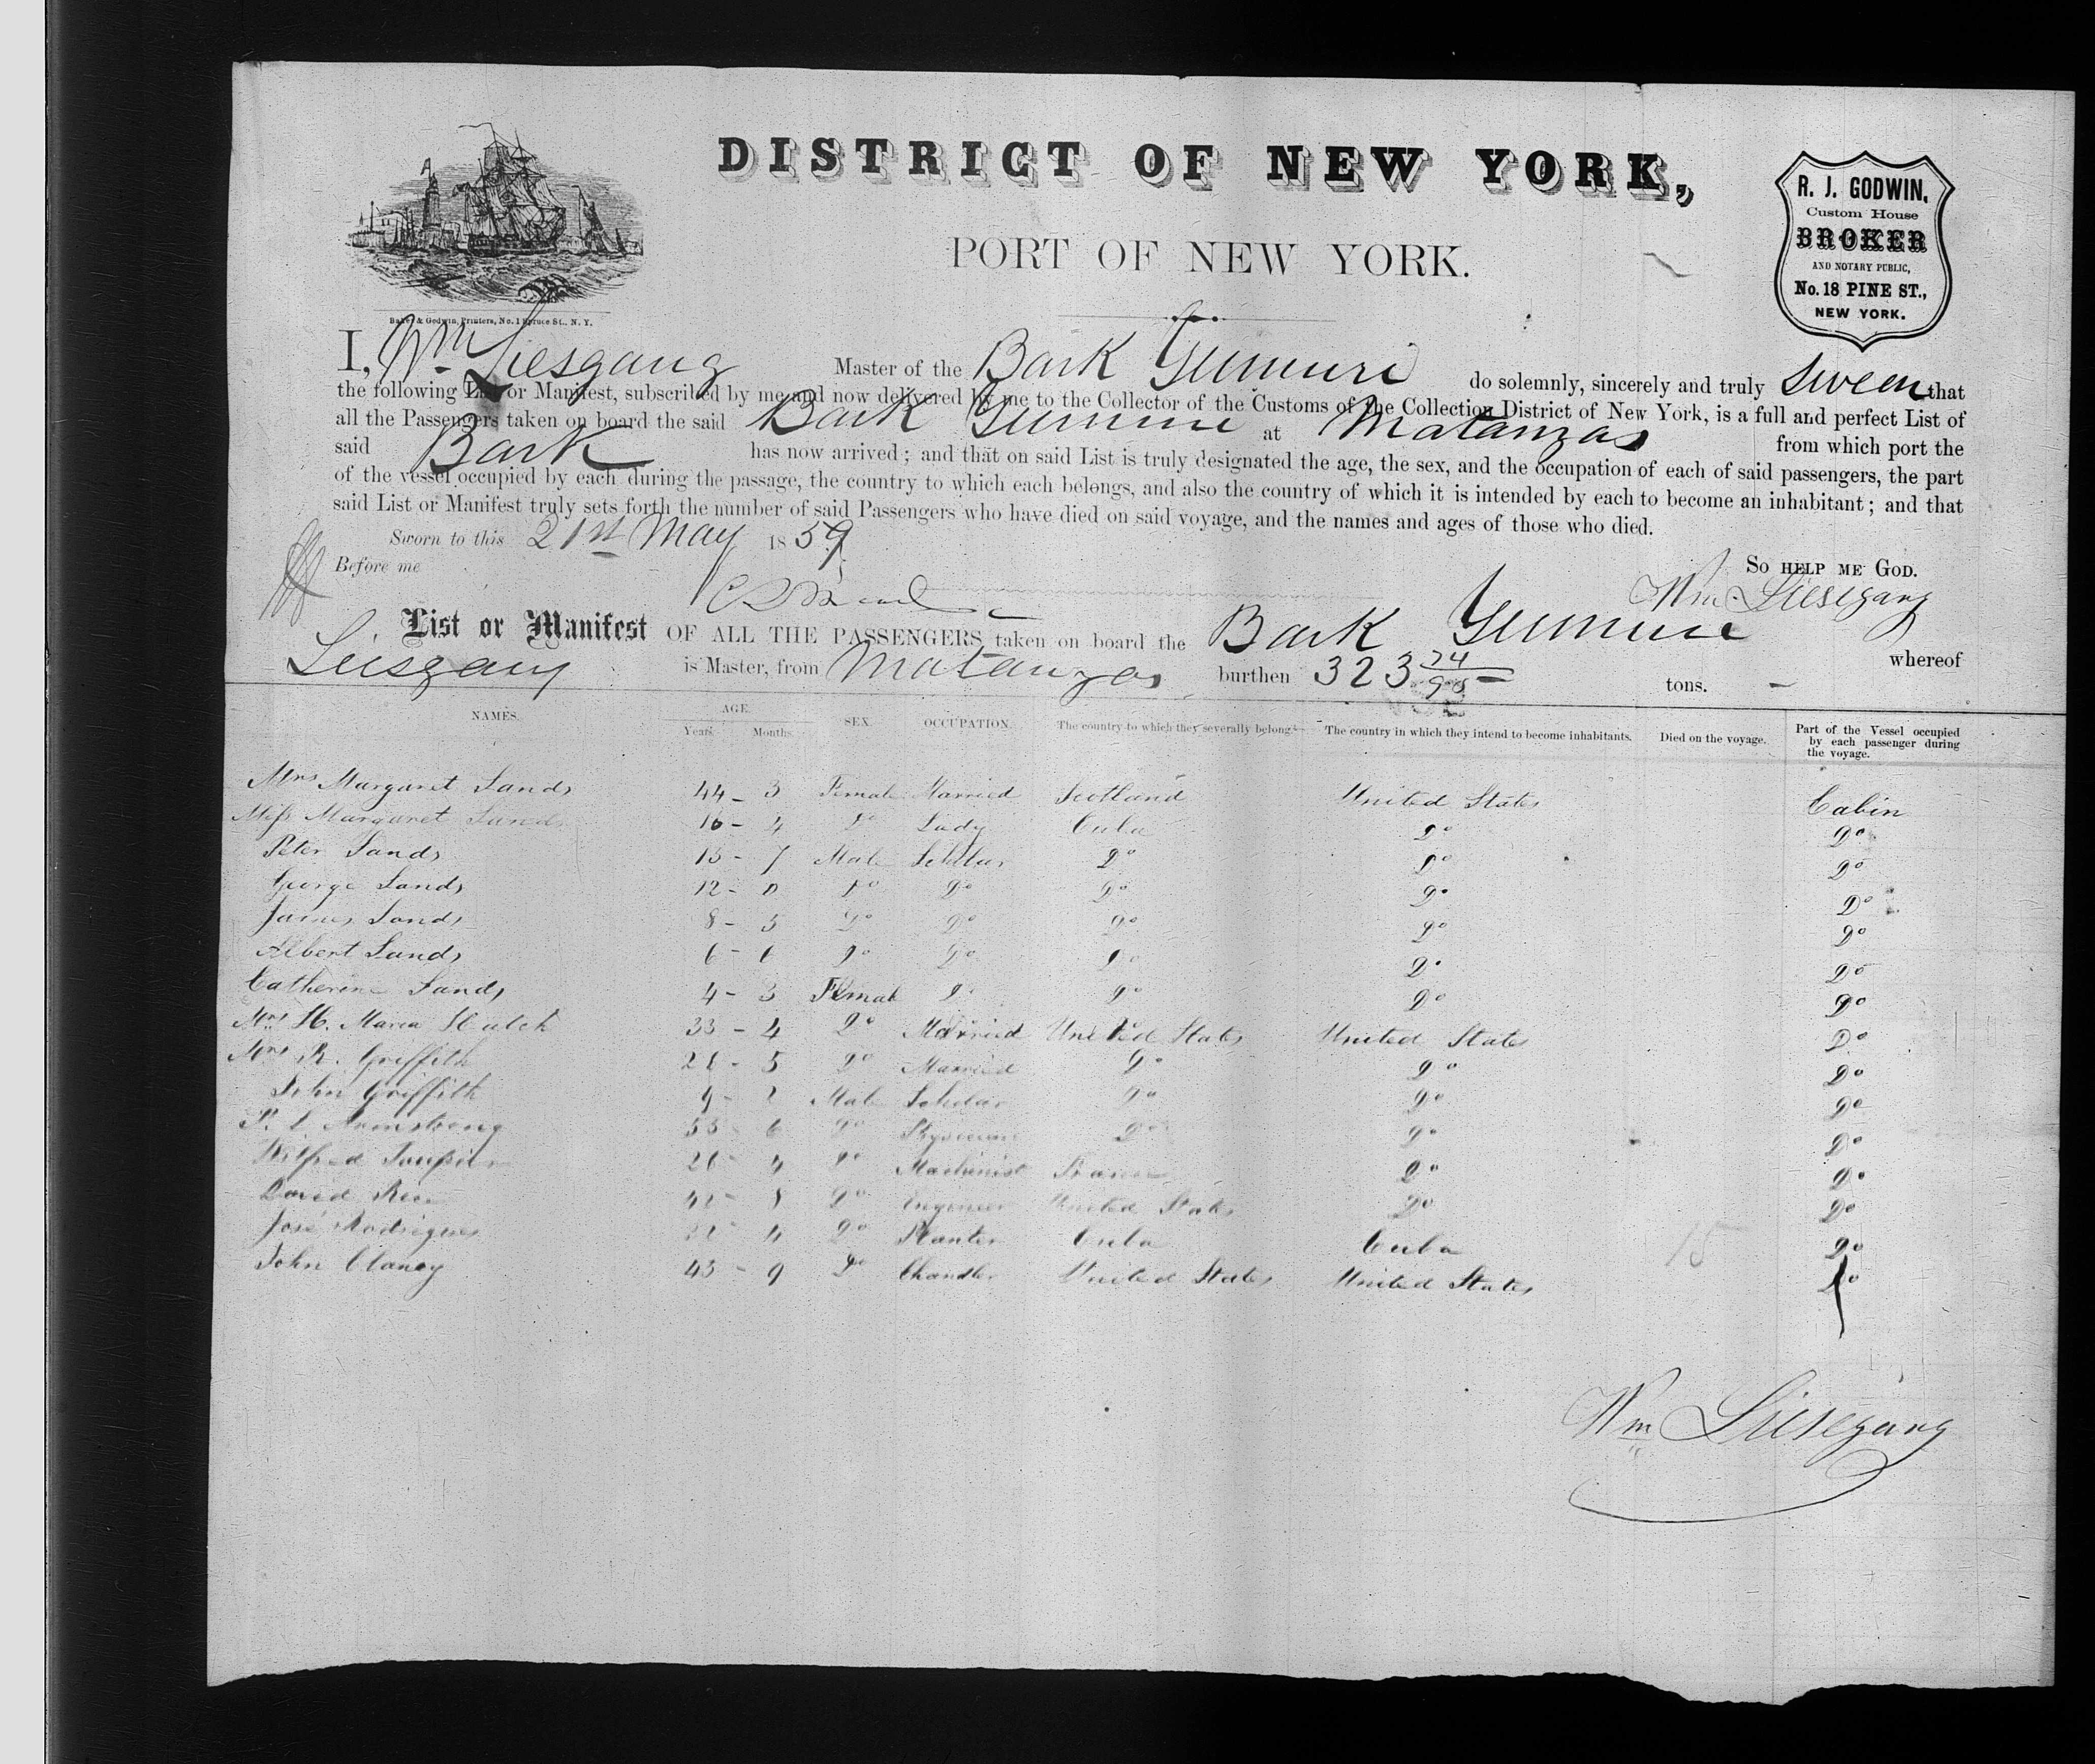 DISTRICT OF NEW YORK,
PORT OF NEW YORK.
R. J. GODWIN,
Custom House
BROKER
AND NOTARY PUBLIC,
No. 18 PINE ST.,
NEW YORK.
Baker & Godwin, Printers, No. 1 Spruce St., N. Y.
I, Wm Liesgang Master of the Bark Yumuri do solemnly, sincerely and truly swear that
the following List or Manifest, subscribed by me and now delivered by me to the Collector of the Customs of the Collection District of New York, is a full and perfect List of
all the Passengers taken on board the said Bark Yumuri at Matanzas from which port the
said Bark has now arrived; and that on said List is truly designated the age, the sex, and the occupation of each of said passengers, the part
of the vessel occupied by each during the passage, the country to which each belongs, and also the country of which it is intended by each to become an inhabitant; and that
said List or Manifest truly sets forth the number of said Passengers who have died on said voyage, and the names and ages of those who died.
Sworn to this 21st May 1859
So help me God.
Before me
Wm Liesegang
List or Manifest OF ALL THE PASSENGERS taken on board the Bark Yumuri whereof
Liesgang is Master, from Matanzas burthen 323 74/95 tons.
NAMES. AGE. Years. Months. SEX. OCCUPATION. The country to which they severally belong. The country in which they intend to become inhabitants. Died on the voyage. Part of the Vessel occupied by each passenger during the voyage.
Mrs Margaret Sands 44 - 3 Female Married Scotland United States Cabin
Miss Margaret Sands 16 - 4 Do Lady Cuba Do Do
Peter Sands 13 - 7 Male Scholar Do Do Do
George Sands 12 - 0 Do Do Do Do Do
James Sands 8 - 5 Do Do Do Do Do
Albert Sands 6 - 6 Do Do Do Do Do
Catherine Sands 4 - 3 Female Do Do Do Do
Mrs H. Maria Hatch 33 - 4 Do Married United States United States Do
Mrs R. Griffith 26 - 5 Do Married Do Do Do
John Griffith 9 - 2 Male Scholar Do Do Do
Armstrong 53 - 6 Do Physician Do Do Do
Wilfred 26 - 4 Do Machinist France Do Do
David Rice 42 - 8 Do Engineer United States Do Do
José Rodrigues 32 - 4 Do Planter Cuba Cuba Do
John Clancy 43 - 9 Do Chandler United States United States Do
15
Wm Liesegang